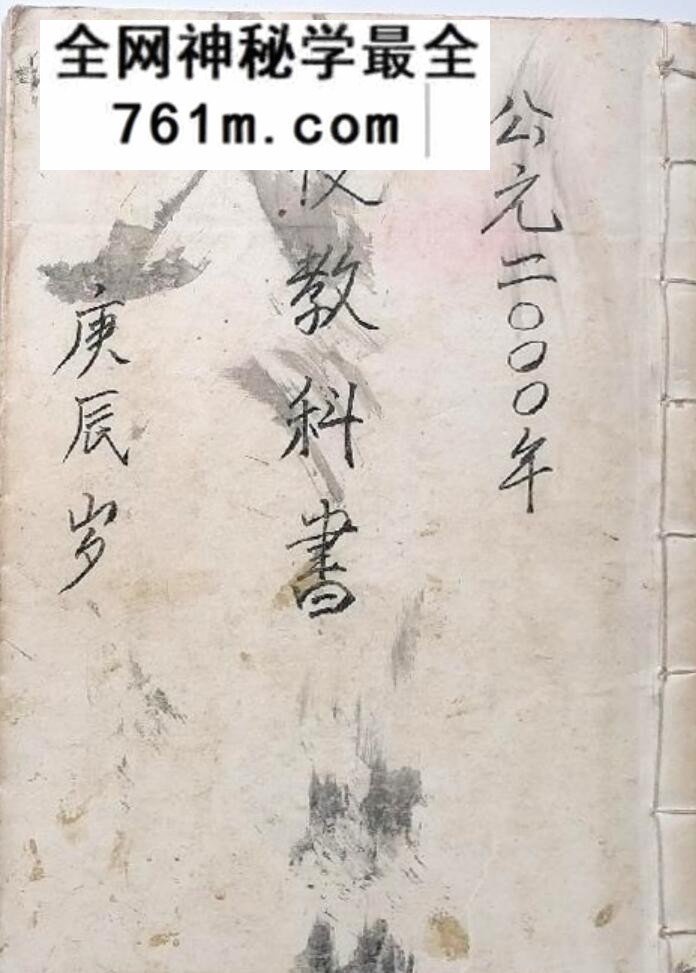 全网神秘学最全
761m.com
公元二〇〇〇年
教科書
庚辰岁